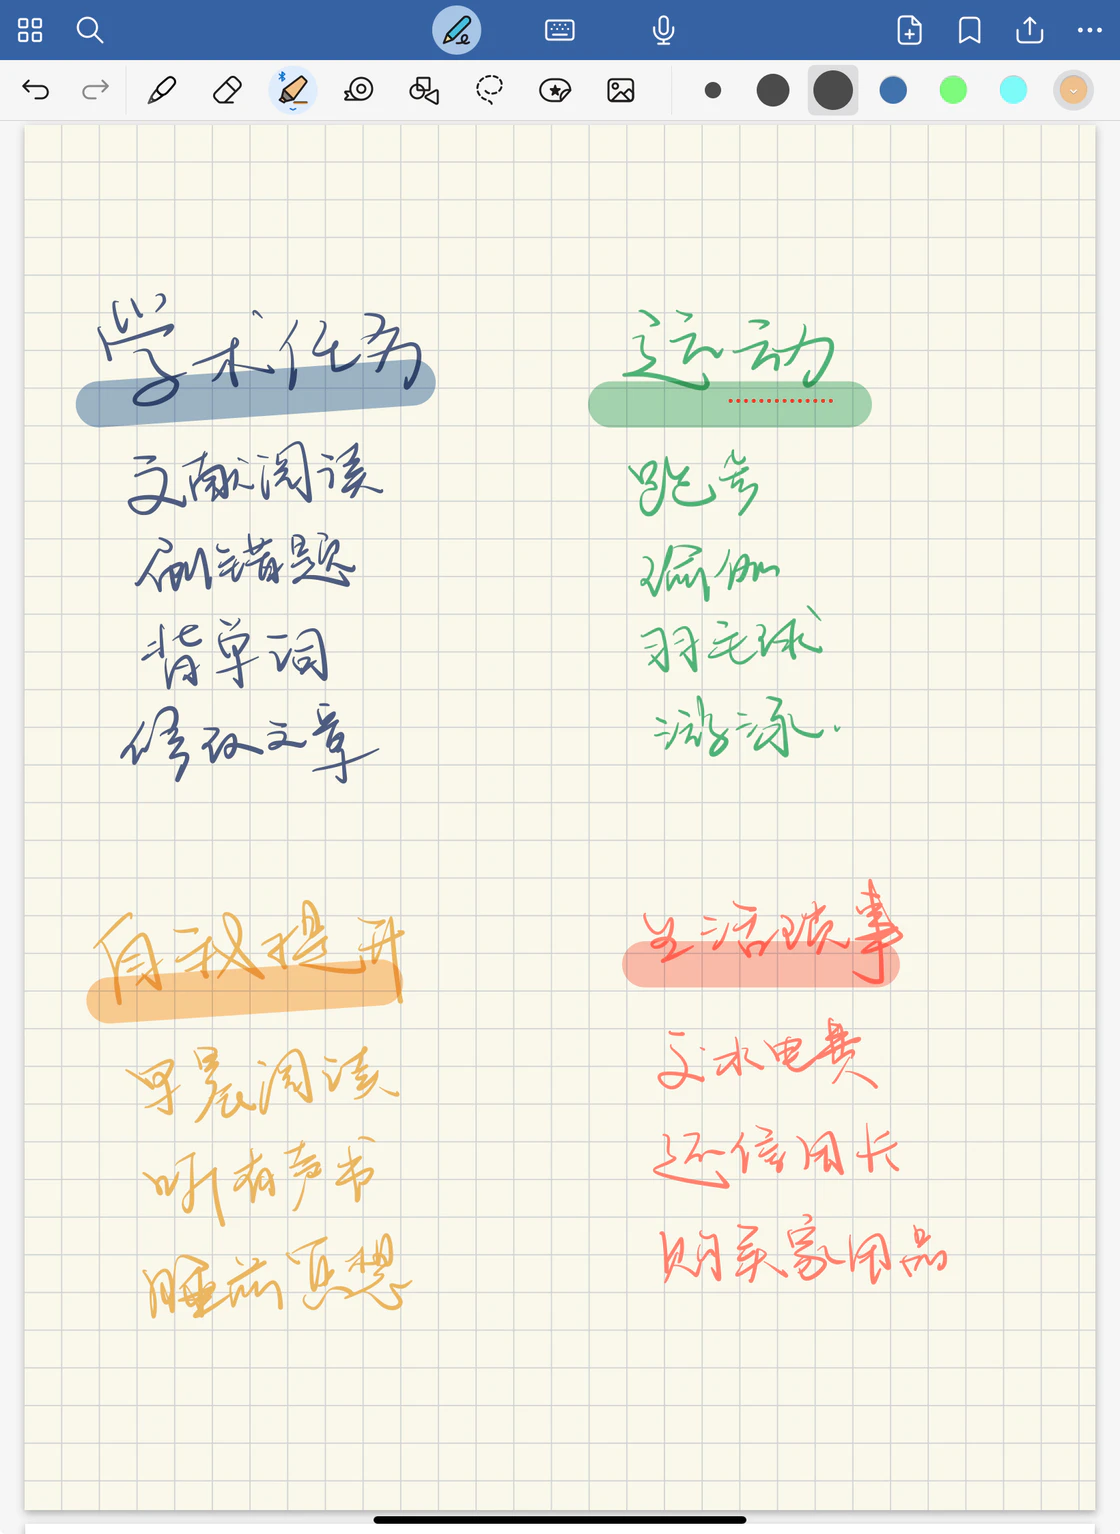 学术任务
文献阅读
刷错题
背单词
修改文章
运动
跑步
瑜伽
羽毛球
游泳.
自我提升
早晨阅读
听有声书
睡前冥想
生活琐事
交水电费
还信用卡
购买家用品